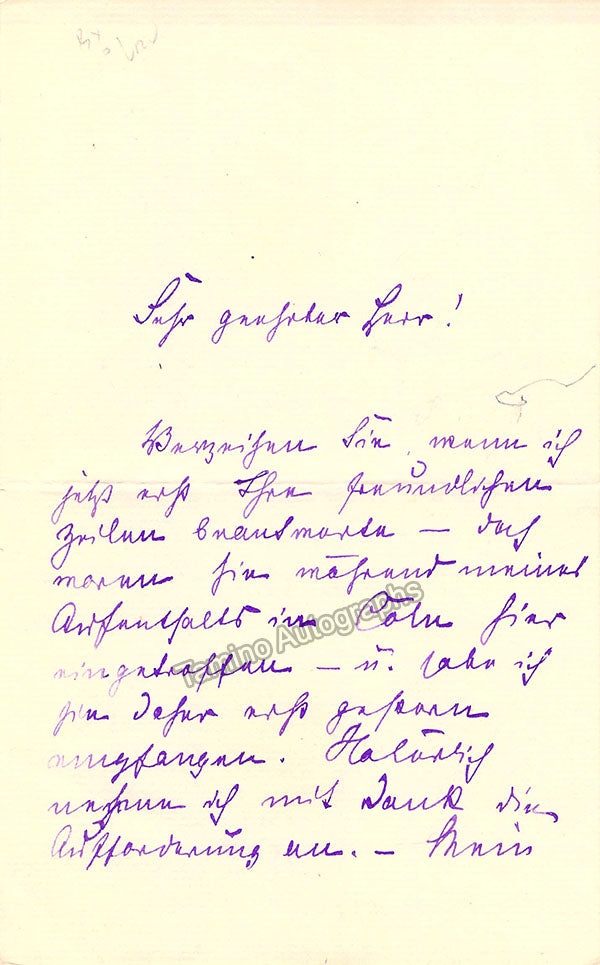 Sehr geehrter Herr!
Verzeihen Sie, wenn ich
jetzt erst Ihre freundlichen
Zeilen beantworte – doch
waren sie während meines
Aufenthalts in Cöln hier
eingetroffen – u. habe ich
sie daher erst gestern
empfangen. Natürlich
nehme ich mit Dank die
Aufforderung an. – Mein
Tamino Autographs